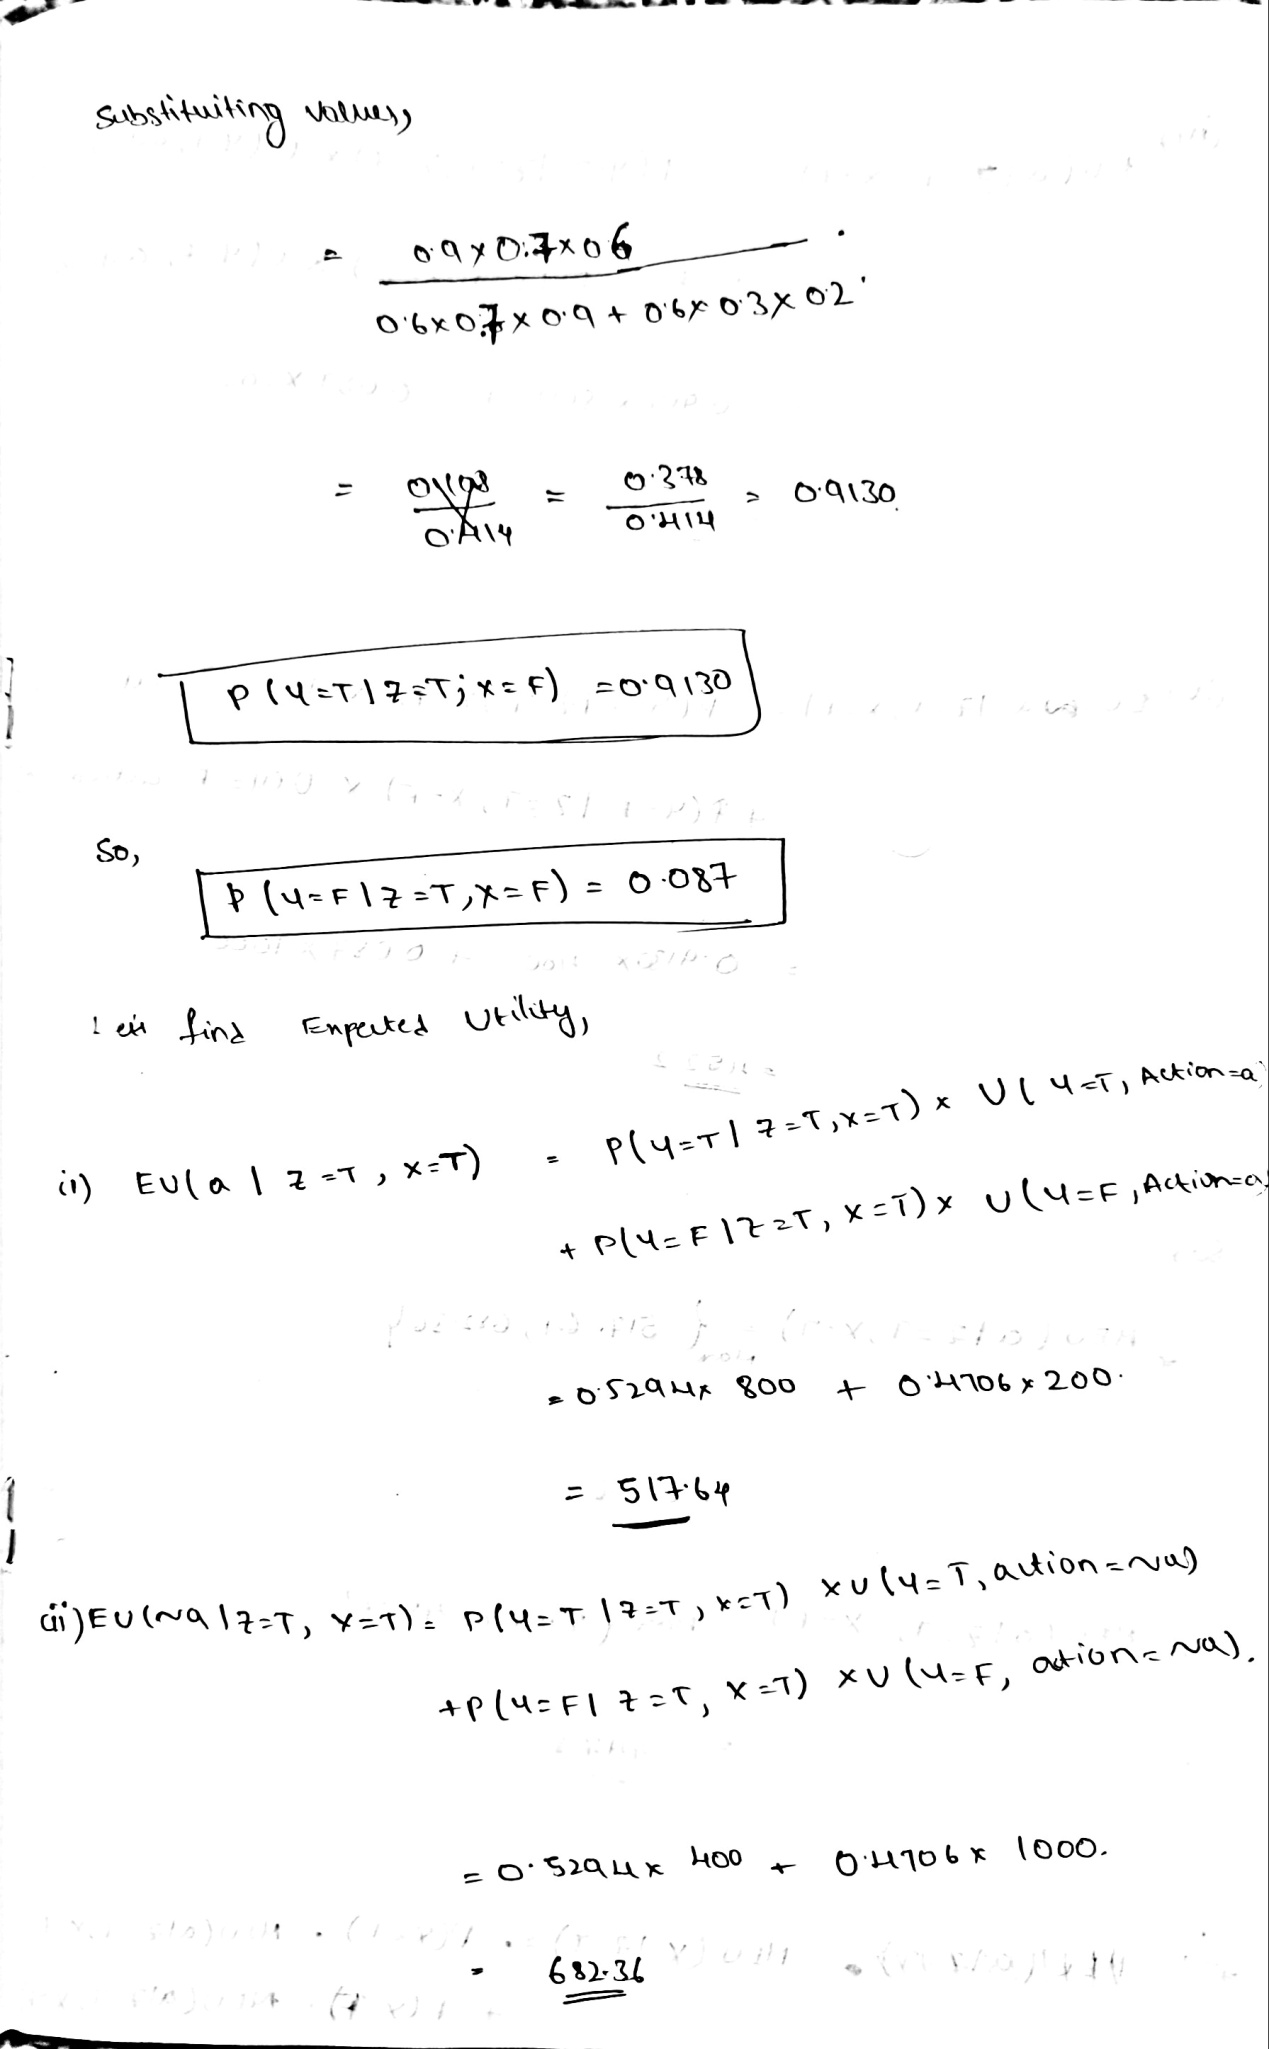 substituiting values,
= 0.9 x 0.7 x 0.6
0.6 x 0.7 x 0.9 + 0.6 x 0.3 x 0.2
= 0.414 = 0.378 / 0.414 = 0.9130
P(Y=T | Z=T; X=F) = 0.9130
So,
P(Y=F | Z=T, X=F) = 0.087
find Expected Utility,
ii) EU(a | Z=T, X=T) = P(Y=T | Z=T, X=T) x U(Y=T, Action=a)
+ P(Y=F | Z=T, X=T) x U(Y=F, Action=a)
= 0.5294 x 800 + 0.4706 x 200.
= 517.64
iii) EU(~a | Z=T, X=T) = P(Y=T | Z=T, X=T) x U(Y=T, action=~a)
+ P(Y=F | Z=T, X=T) x U(Y=F, action=~a).
= 0.5294 x 400 + 0.4706 x 1000.
= 682.36